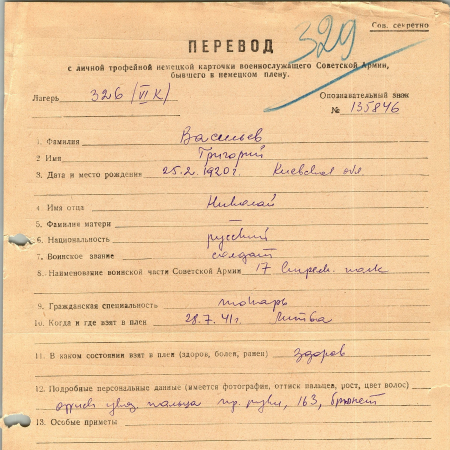 Сов. секретно
329
ПЕРЕВОД
с личной трофейной немецкой карточки военнослужащего Советской Армии,
бывшего в немецком плену.
Лагерь 326 /VI K/ Опознавательный знак
№ 135846
1. Фамилия Васильев
2 Имя Григорий
3. Дата и место рождения 25.2.1920г. Киевская обл
4. Имя отца Николай
5. Фамилия матери —
6. Национальность русский
7. Воинское звание солдат
8. Наименование воинской части Советской Армии 17 Стрел. полк
9. Гражданская специальность токарь
10. Когда и где взят в плен 28.7.41г. Литва
11. В каком состоянии взят в плен (здоров, болен, ранен) здоров
12. Подробные персональные данные (имеется фотография, оттиск пальцев, рост, цвет волос)
пальца пр. руки, 163, брюнет
13. Особые приметы